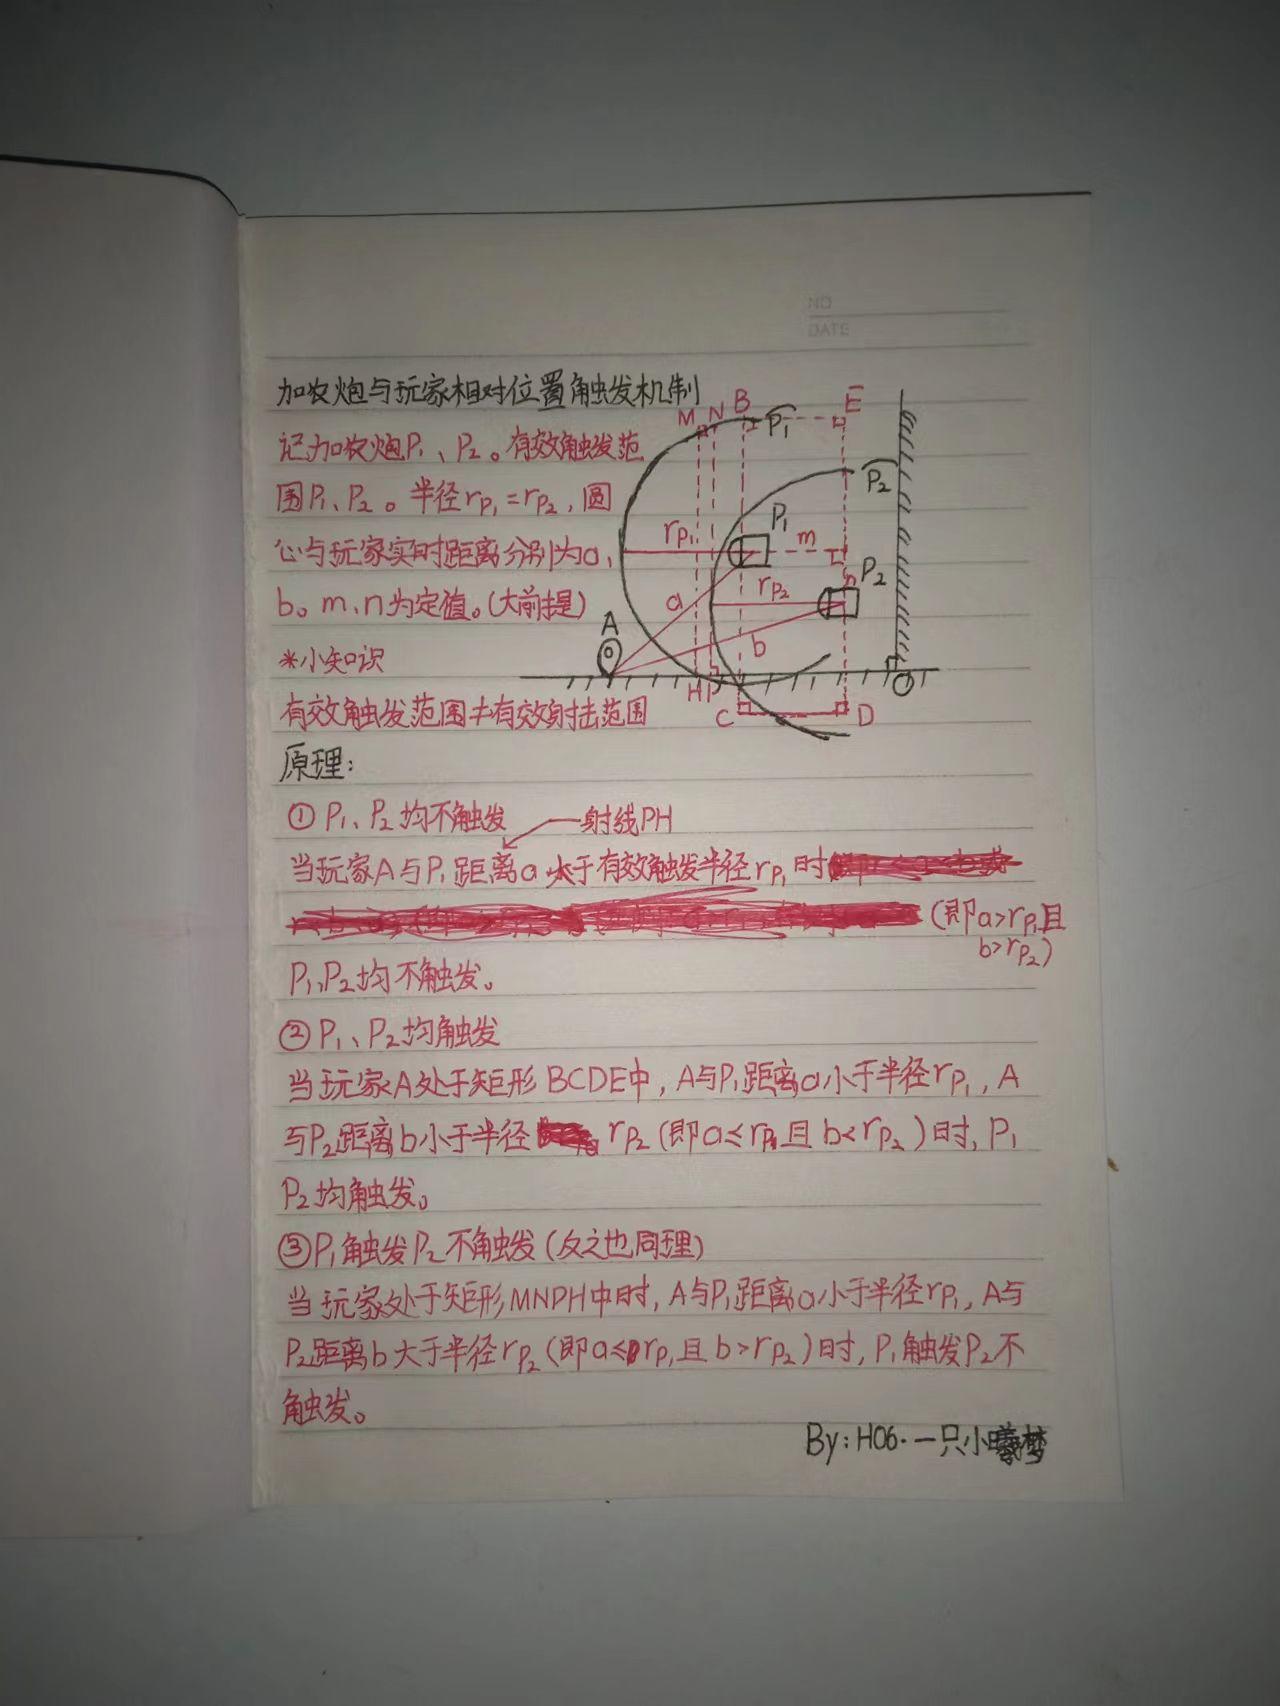 NO
DATE
加农炮与玩家相对位置触发机制
记加农炮P₁、P₂。有效触发范
围P₁、P₂。半径rp₁=rp₂，圆
心与玩家实时距离分别为a、
b。m、n为定值。(大前提)
*小知识
有效触发范围≠有效射击范围
M N B P₁ E
P₂
rp₁ P₁ m
n P₂
a rp₂
A b
H P O
C D
原理：
① P₁、P₂均不触发 射线PH
当玩家A与P₁距离a大于有效触发半径rp₁时
(即a>rp₁且
b>rp₂)
P₁、P₂均不触发。
② P₁、P₂均触发
当玩家A处于矩形BCDE中，A与P₁距离a小于半径rp₁，A
与P₂距离b小于半径 rp₂(即a≤rp₁且b<rp₂)时，P₁
P₂均触发。
③P₁触发P₂不触发(反之也同理)
当玩家处于矩形MNPH中时，A与P₁距离a小于半径rp₁，A与
P₂距离b大于半径rp₂(即a≤rp₁且b>rp₂)时，P₁触发P₂不
触发。
By：H06·一只小曦梦